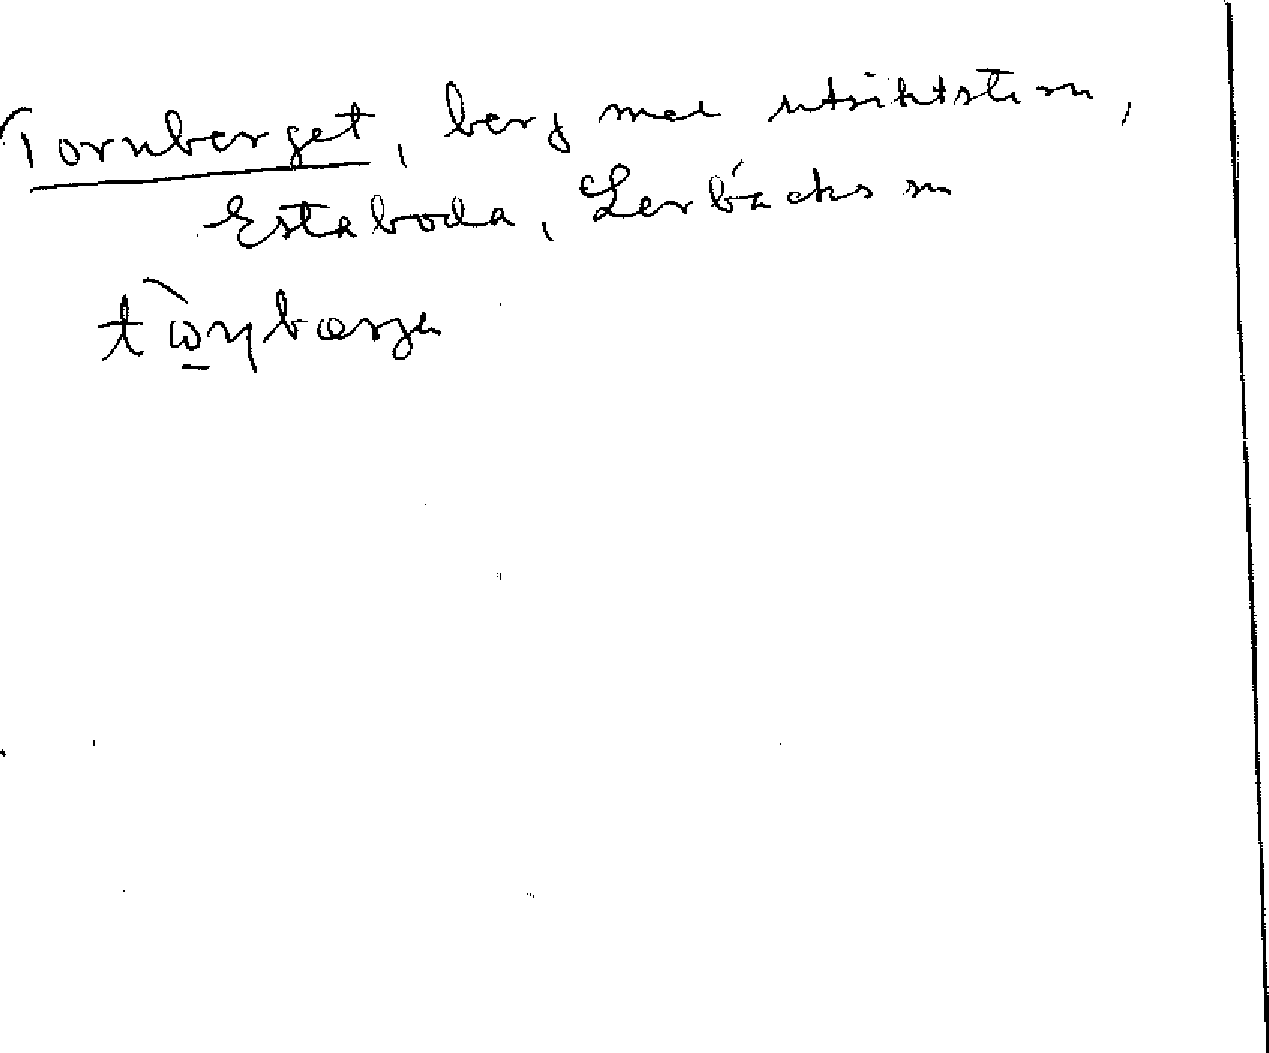 Tornberget, berg med utsiktstorn,
Estaboda, Lerbäcks sn